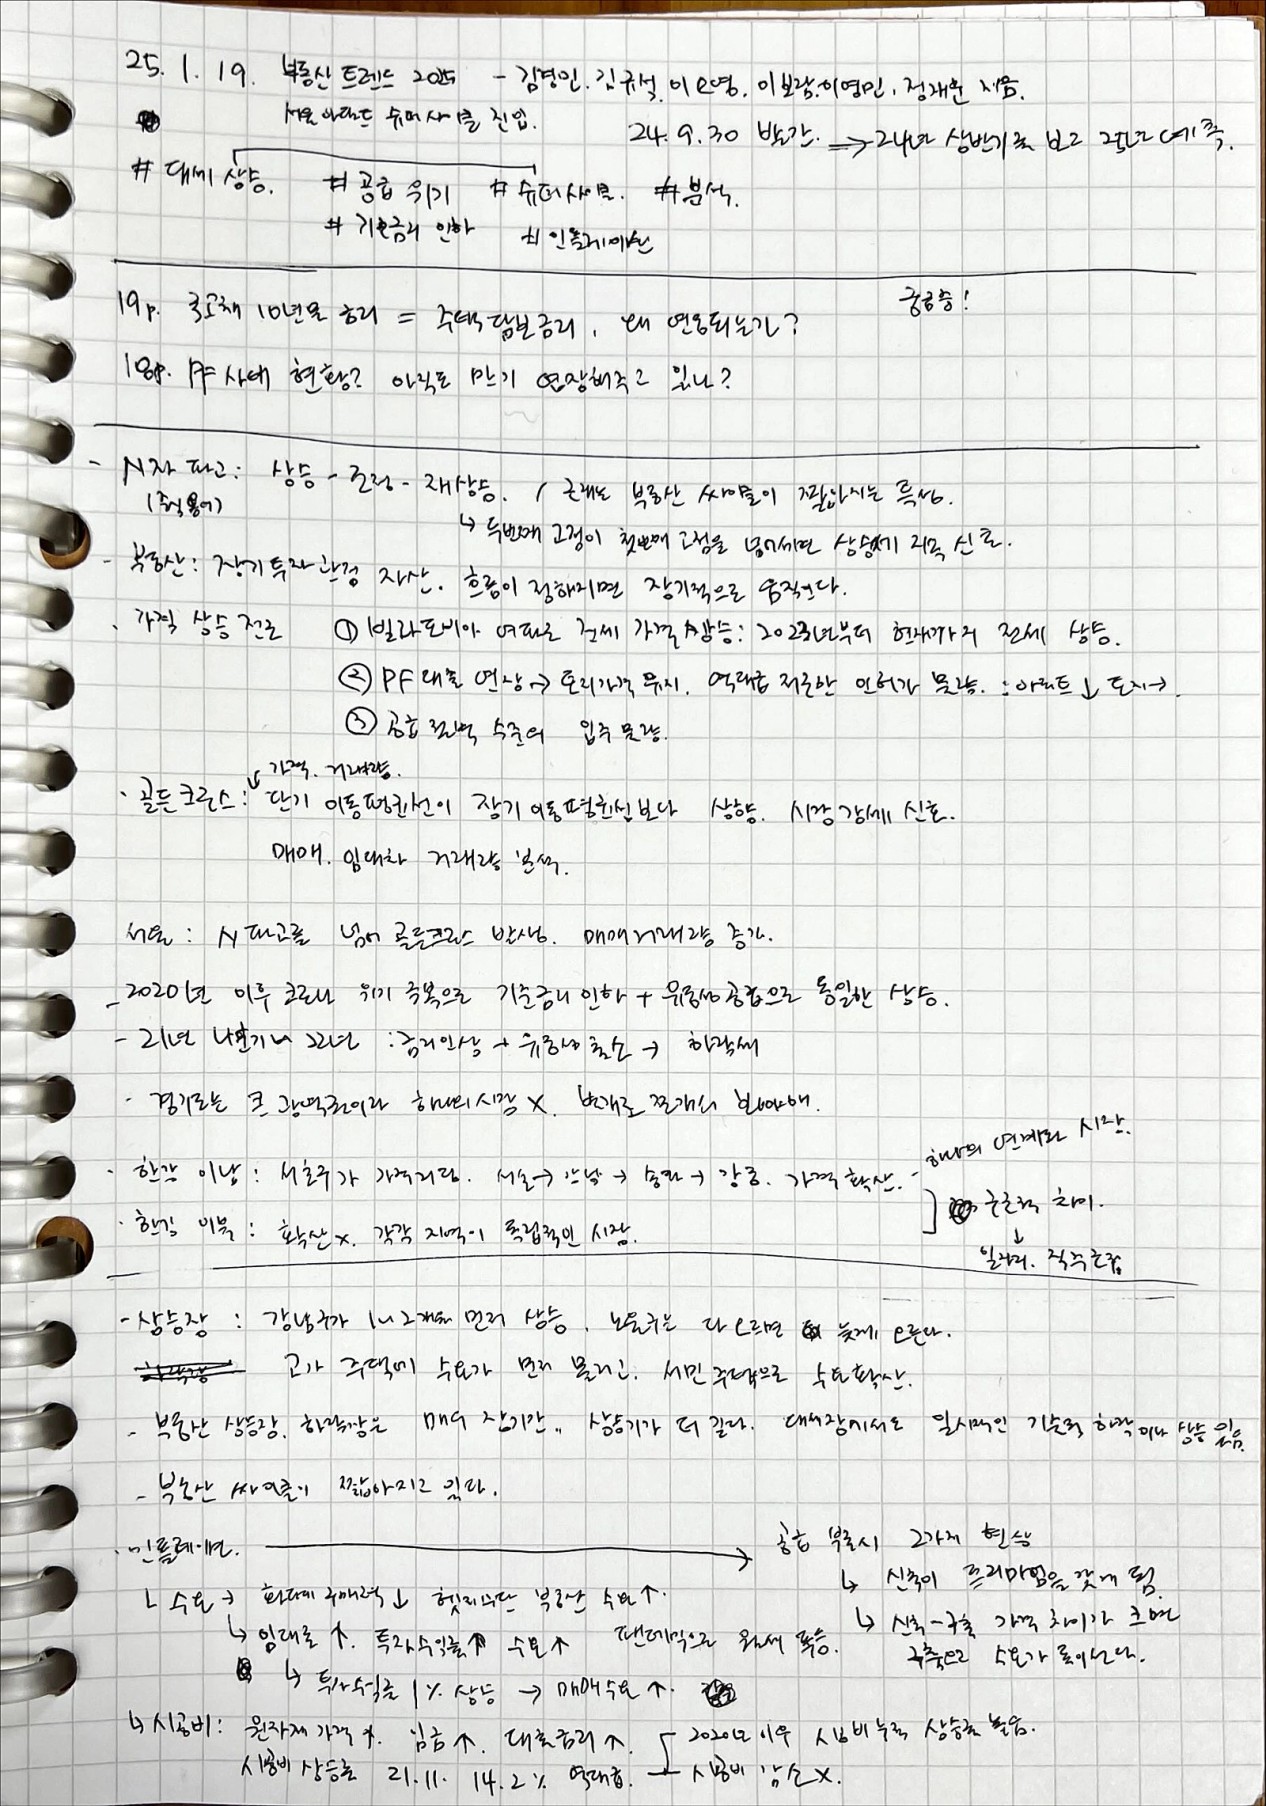 25. 1. 19. 부동산 트렌드 2025 - 김경민. 김규석. 이소영. 이보람. 이영민. 정재훈 지음.
서울 아파트 슈퍼사이클 진입.
24. 9. 30 발간. → 24년 상반기로 보고 25년 예측.
# 대세 상승. # 공급 위기 # 슈퍼사이클. # 분석.
# 기준금리 인하 # 인플레이션
궁금증!
19p. 국고채 10년물 금리 = 주택담보금리, 왜 연동되는가?
108p. PF 사태 현황? 아직도 만기 연장해주고 있나?
- N자 파고: 상승 - 조정 - 재상승. / 근래는 부동산 싸이클이 짧아지는 특성.
(주식용어)
↳ 두번째 고점이 첫번째 고점을 넘어서면 상승세 지속 신호.
- 부동산: 장기투자관점 자산. 흐름이 정해지면 장기적으로 움직인다.
· 가격 상승 전조 ① 빌라포비아 여파로 전세 가격 상승: 2023년부터 현재까지 전세 상승.
② PF대출 연장 → 토지가격 유지. 역대급 저조한 인허가 물량. : 아파트↓ 토지→.
③ 공급 절벽 수준의 입주 물량.
↓ 가격. 거래량.
· 골든크로스: 단기 이동평균선이 장기 이동평균선보다 상향. 시장 강세 신호.
매매. 임대차 거래량 분석.
서울: N파고를 넘어 골든크로스 발생. 매매거래량 증가.
- 2020년 이후 코로나 위기 극복으로 기준금리 인하 + 유동성 공급으로 동일한 상승.
- 21년 하반기~22년 : 금리인상 + 유동성 축소 → 하락세
· 경기도는 큰 광역권이라 하나의 시장 X. 번개로 쪼개서 봐야해.
· 한강 이남: 서초구가 가격리딩. 서초 → 강남 → 송파 → 강동. 가격 확산. - 하나의 연계된 시장.
· 한강 이북: 확산 X. 각각 지역이 독립적인 시장.
] 근본적 차이.
↓
일자리. 직주근접
- 상승장 : 강남구가 1~2개월 먼저 상승. 노원구는 다 오르면 늦게 오른다.
고가 주택에 수요가 먼저 몰리고. 서민주택으로 수요확산.
- 부동산 상승장. 하락장은 매우 장기간.. 상승기가 더 길다. 대세장에서도 일시적인 기술적 하락이나 상승 있음.
- 부동산 싸이클이 짧아지고 있다.
· 인플레이션. → 공급 부족시 2가지 현상
↳ 신축이 프리미엄을 갖게 됨.
↳ 신축-구축 가격 차이가 크면
구축으로 수요가 돌아선다.
└ 수요 → 화폐의 구매력 ↓ 헷지수단 부동산 수요↑.
↳ 임대료↑. 투자수익률↑ 수요↑ 팬데믹으로 월세 폭등.
↳ 투자수익률 1% 상승 → 매매수요↑.
↳ 시공비: 원자재 가격↑. 임금↑. 대출금리↑. 2020년 이후 시공비 누적 상승률 높음.
시공비 상승률 21.11. 14.2% 역대급. - 시공비 감소 X.